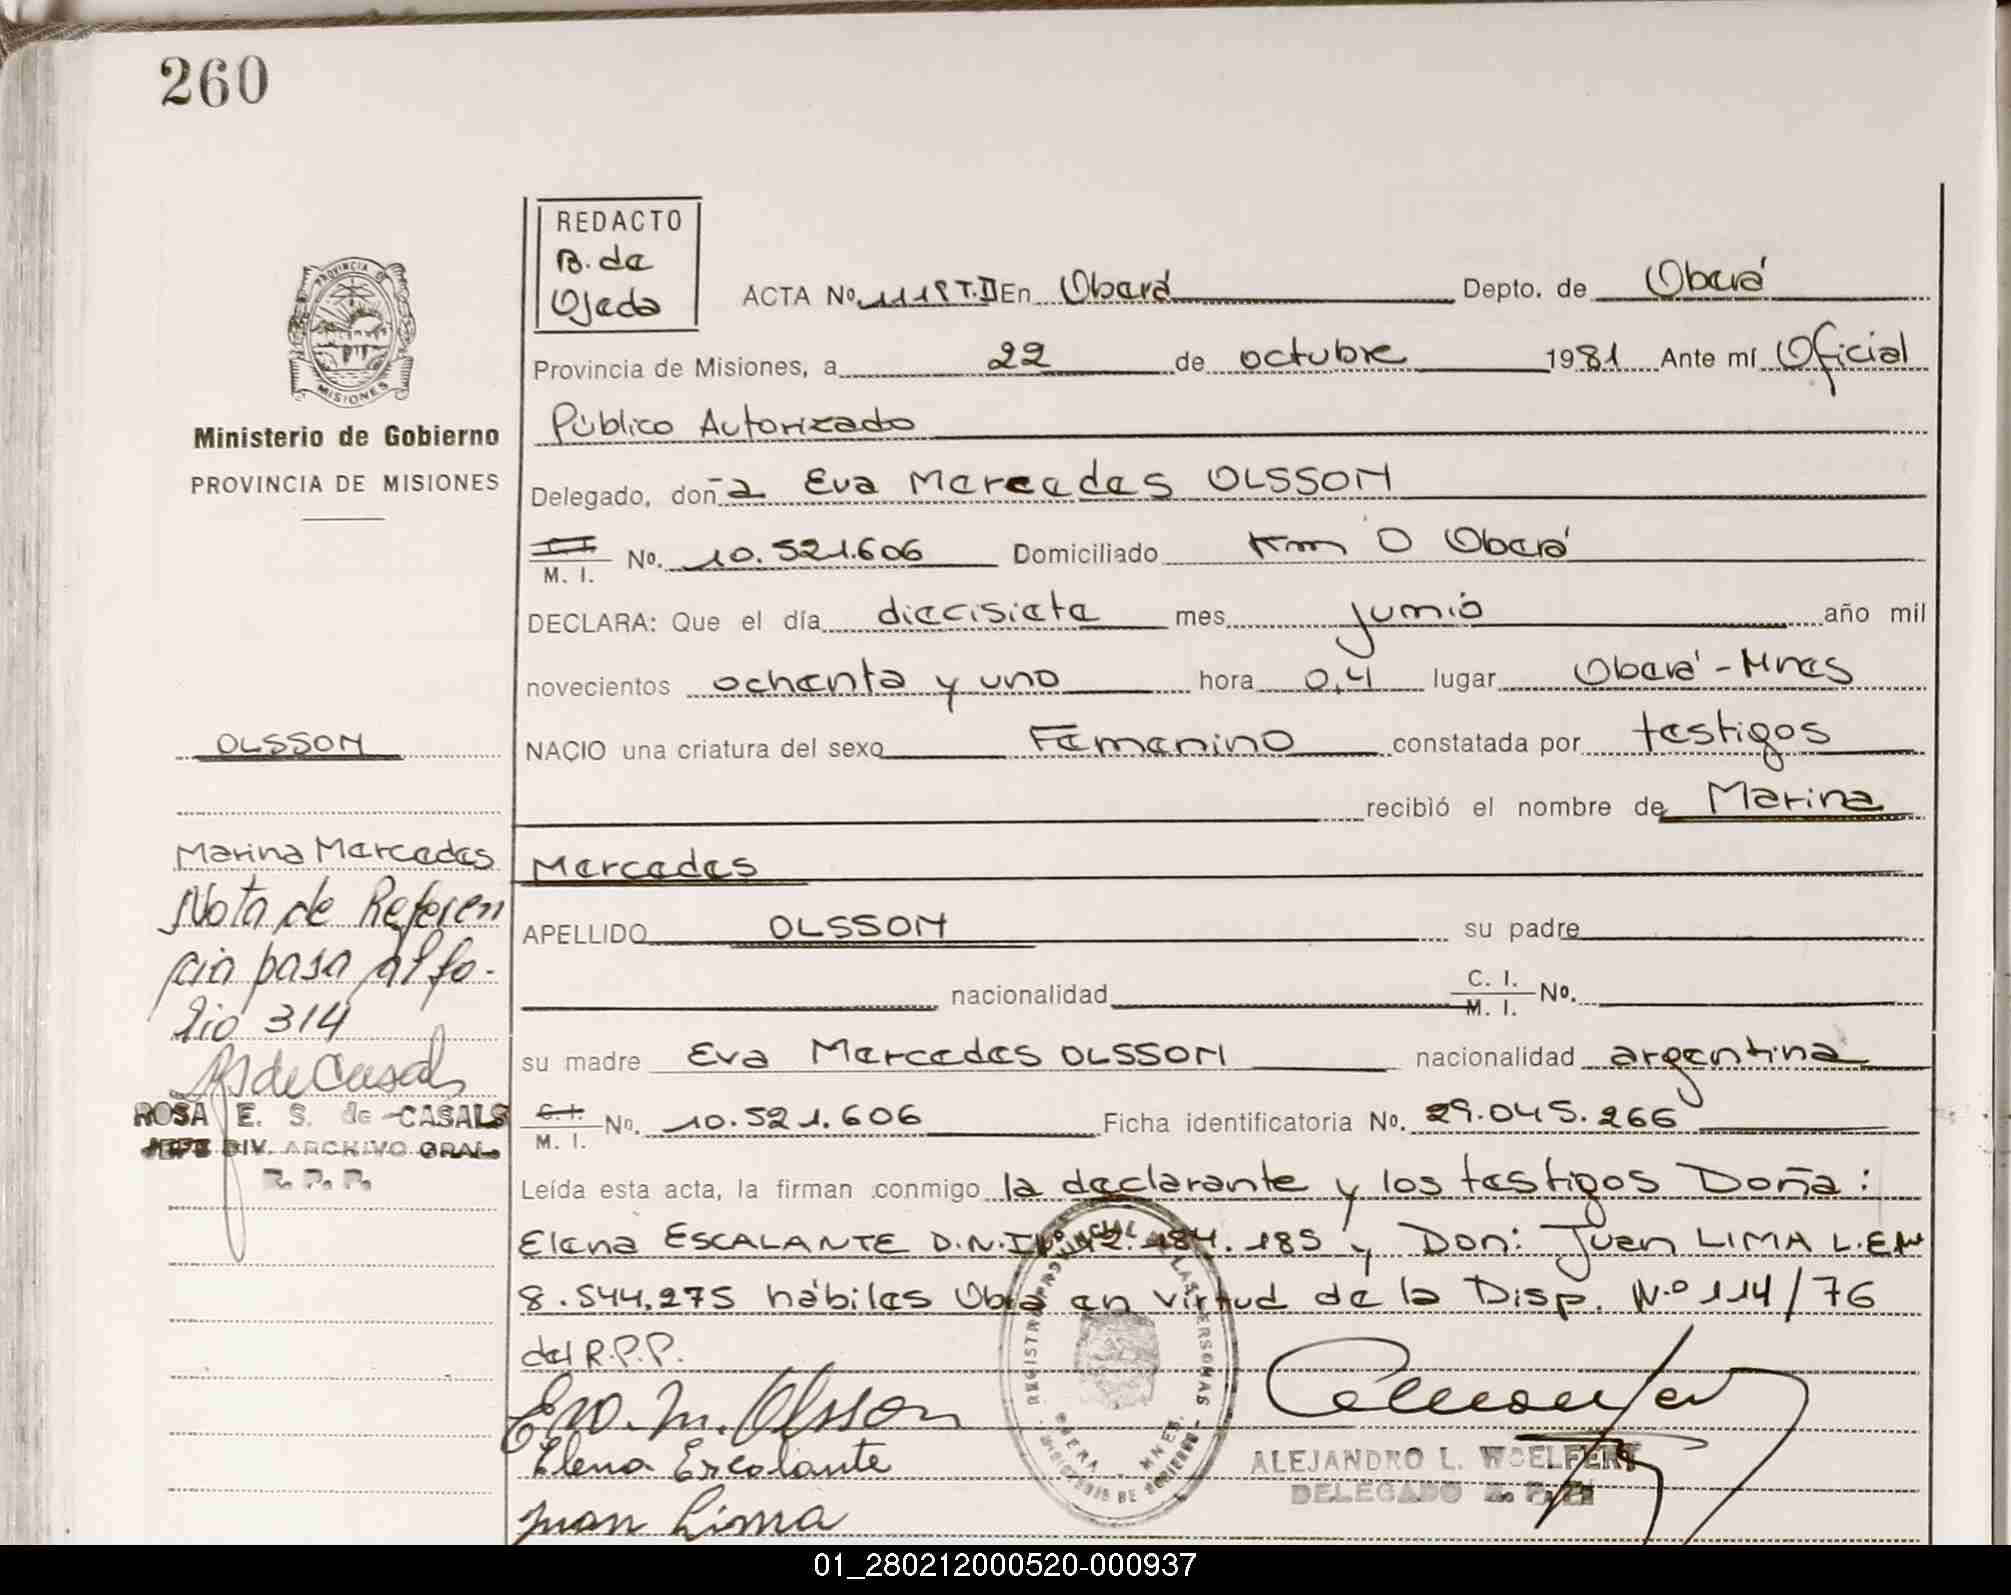 260
REDACTO
B. de
Ojeda
ACTA No. 1118 T.II En Oberá Depto. de Oberá
Provincia de Misiones, a 22 de octubre 1981 Ante mí Oficial
Público Autorizado
PROVINCIA DE
MISIONES
Ministerio de Gobierno
PROVINCIA DE MISIONES
Delegado, doña Eva Mercedes OLSSON
C. I.
M. I. No. 10.521.606 Domiciliado Km 0 Oberá
DECLARA: Que el día diecisiete mes junio año mil
novecientos ochenta y uno hora 0,4 lugar Oberá - Mnes
NACIO una criatura del sexo Femenino constatada por testigos
recibió el nombre de Marina
Mercedes
APELLIDO OLSSON su padre
nacionalidad C. I.
M. I. No.
su madre Eva Mercedes OLSSON nacionalidad argentina
C. I.
M. I. No. 10.521.606 Ficha identificatoria No. 29.045.266
Leída esta acta, la firman conmigo la declarante y los testigos Doña:
Elena ESCALANTE D.N.I. 12.184.185 y Don: Juan LIMA L.E.
8.544.275 hábiles Oberá en virtud de la Disp. N.º 114/76
del R.P.P.
Eva. M. Olsson
Elena Escalante
Juan Lima
OLSSON
Marina Mercedes
Nota de Referen
cia pasa al fo-
lio 314
ROSA E. S. de CASALS
JEFE DIV. ARCHIVO GRAL.
R. P. P.
REGISTRO PROVINCIAL DE LAS PERSONAS
OBERA - MNES.
MINISTERIO DE GOBIERNO
ALEJANDRO L. WOELFERT
DELEGADO R. P. P.
01_280212000520-000937